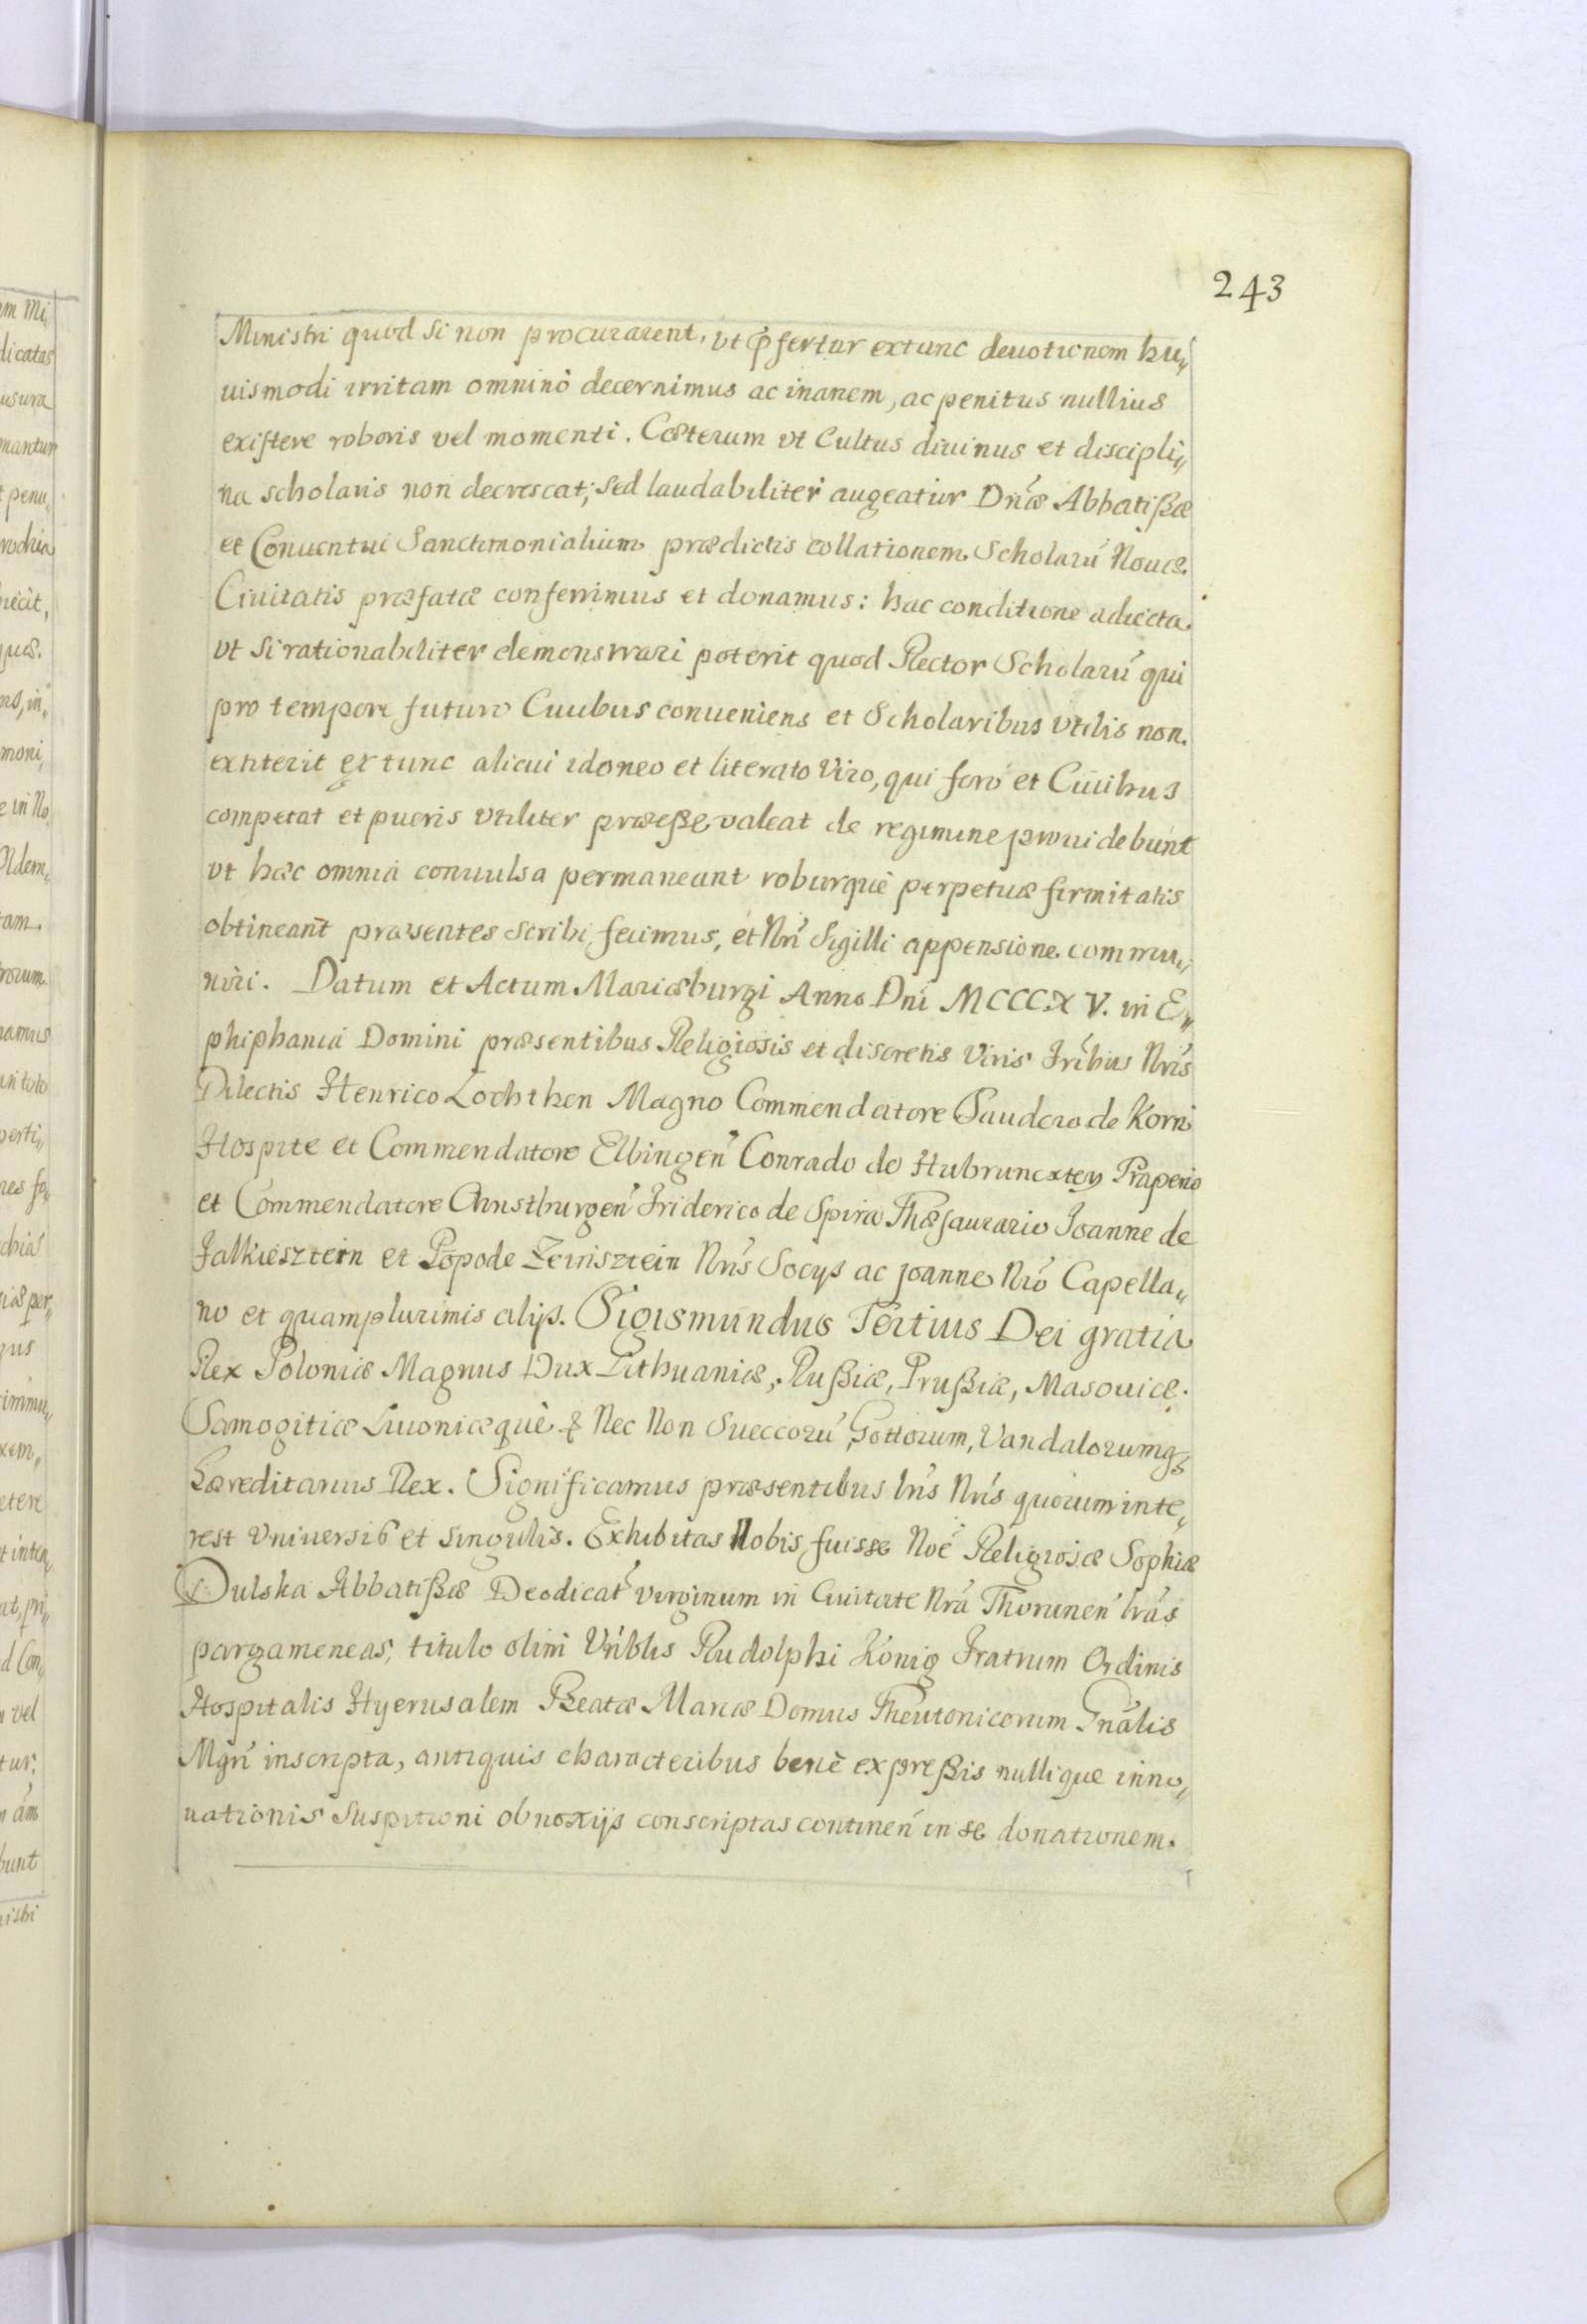 243
Ministri quod si non procurarent, vt p̃fertur extunc deuotionem hu„
uismodi irritam omninò decernimus ac inanem, ac penitus nullius
existere roboris vel momenti. Cæterum vt Cultus diuinus et discipli„
na scholaris non decrescat; sed laudabiliter augeatur Dńæ Abbatißæ
et Conuentui Sanctimonialium prædictis collationem Scholarú Nouæ
Ciuitatis præfatæ conferrimus et donamus: hac conditione adiecta
vt si rationabiliter demonstrari poterit quod Rector Scholarú qui
pro tempore futuro Ciuibus conueniens et Scholaribus vtilis non
extiterit extunc alicui idoneo et literato Viro, qui foro et Ciuibus
competat et pueris vtiliter præeße valeat de regimine prouidebunt
vt hæc omnia conuulsa permaneant roburquè perpetuæ firmitatis
obtineant præsentes scribi fecimus, et Nrí Sigilli appensione commu„
niri. Datum et Actum Mariæburgi Anno Dní MCCCXV. in E„
phiphania Domini præsentibus Religiosis et discretis Viris Fríbus Nrís
Dilectis Henrico Lochthen Magno Commendatore Saudero de Korni
Hospite et Commendatore Elbingeń Conrado de Hubruncxtey Traperio
et Commendatore Christburgeń Friderico de Spira Thæsaurario Joanne de
Falkiesztein et Popode Zeirisztein Nrís Socys ac joanne Nró Capella„
no et quamplurimis alijs. Sigismundus Tertius Dei gratia
Rex Poloniæ Magnus Dux Lithuaniæ, Rußiæ, Prußiæ, Masouiæ
Samogitiæ Liuoniæquè & Nec Non Sueccorú Gottorum, Vandalorumq3
Hæreditarius Rex. Significamus præsentibus lrís Nrís quorum inte„
rest Vniuersis et singulis. Exhibitas Nobis fuisse Noé Religiosæ Sophiæ
Dulska Abbatißæ Deodicat́ virginum in Ciuitate Nrá Thoruneń lrás
pargameneas, titulo olim Vńblis Rudolphi König Fratrum Ordinis
Hospitalis Hyerusalem Beatæ Mariæ Domus Theutonicorum Gnális
Mgrí inscripta, antiquis characteribus benè expreßis nullique inno„
uationis suspitioni obnoxijs conscriptas contineń in se donationem.